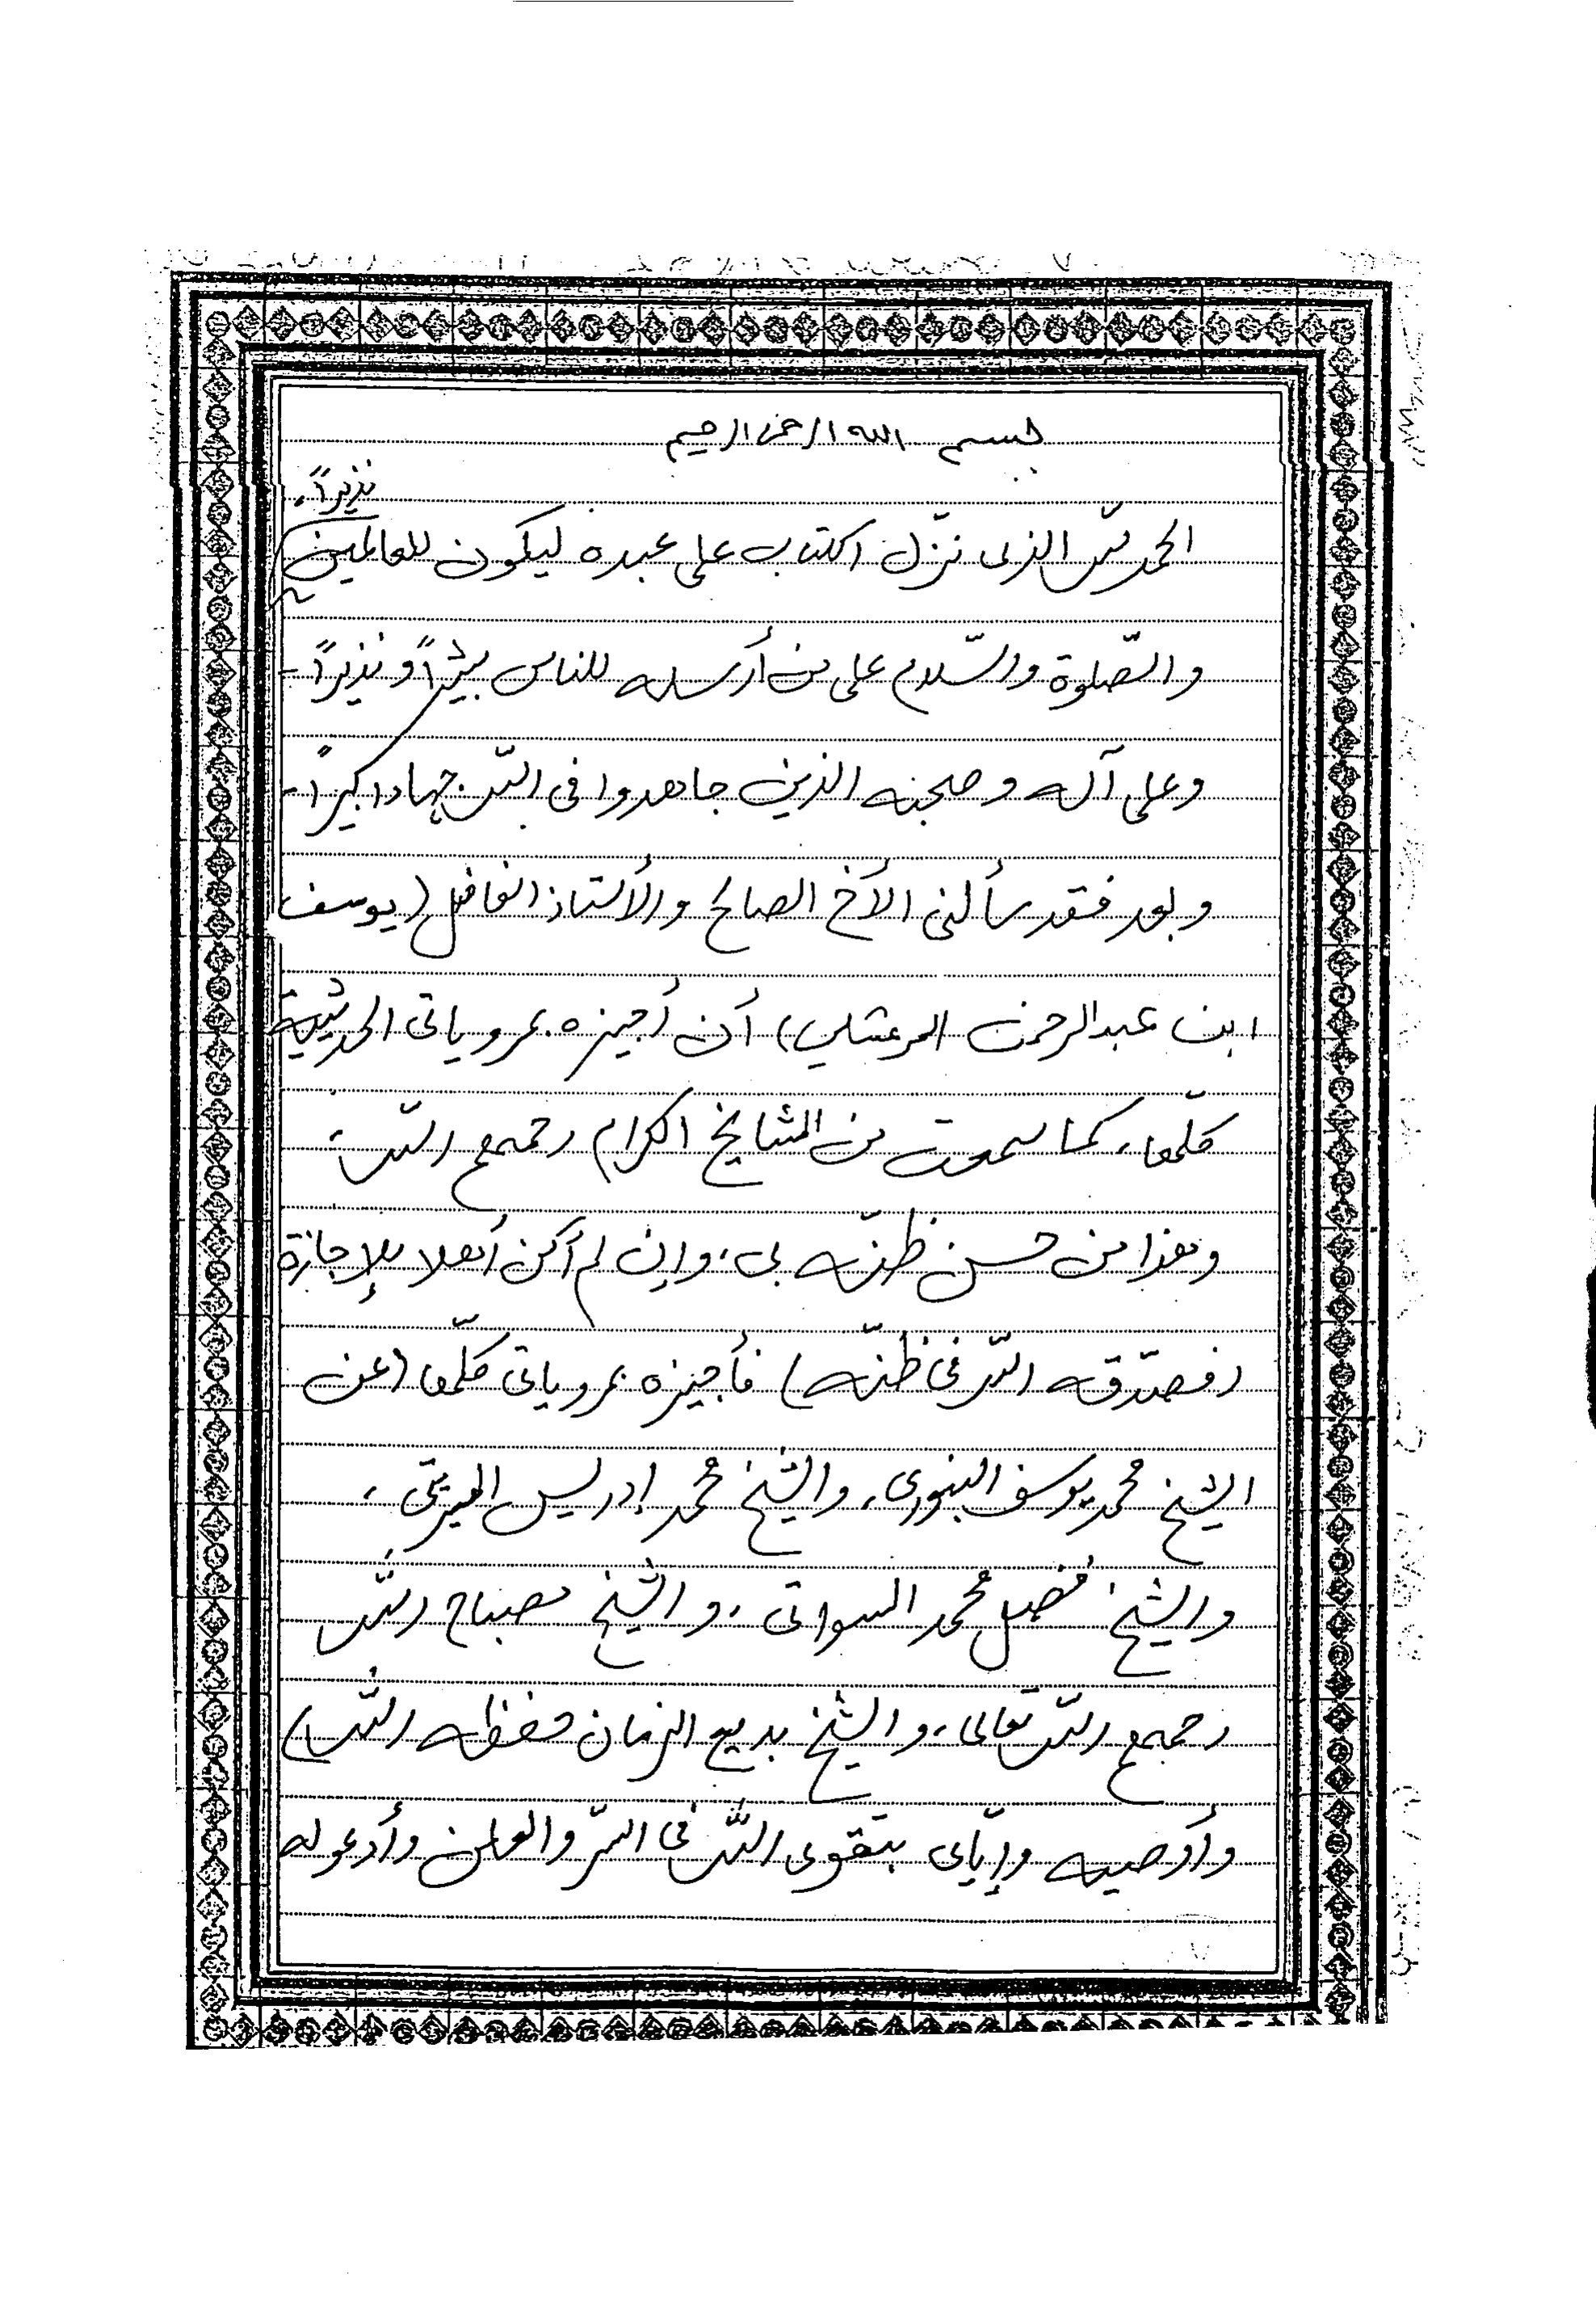 بسم الله الرحمن الرحيم
الحمد لله الذى نزّل الكتاب على عبده ليكون للعالمين نذيراً،
والصّلوة والسّلام على من أرسله للناس بشيراً ونذيراً -
وعلى آله وصحبه الذين جاهدوا فى الله جهادا كبيراً -
وبعد فقد سألنى الأخ الصالح والأستاذ الفاضل (يوسف
ابن عبدالرحمن المرعشلي) أن أجيزه بمروياتى الحديثية
كلّها، كما سمعت من المشايخ الكرام رحمهم الله،
وهذا من حسن ظنّه بى، وإن لم أكن أهلا للإجازة
(فصدّقه الله فى ظنّه) فأجيزه بمروياتى كلّها (عن
الشيخ محمد يوسف البنورى، والشيخ محمد إدريس الميرتى،
والشيخ فضل محمد السواتى، والشيخ مصباح الله
رحمهم الله تعالى، والشيخ بديع الزمان حفظه الله)
وأوصيه وإيّاى بتقوى الله فى السرّ والعلن وأدعو له